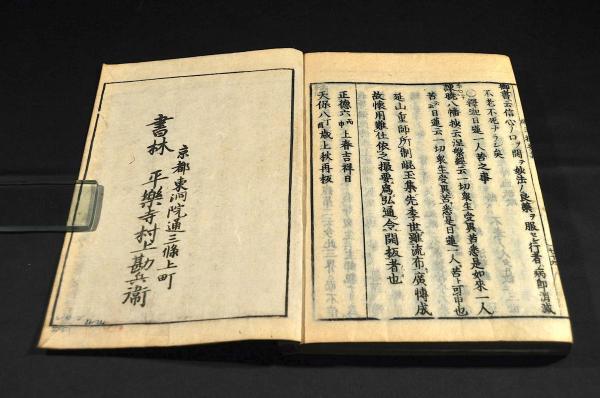 御書云信心ノ口ヲ開テ妙法ノ良薬ヲ服セヨ行者ノ病即消滅
不老不死ナラン矣
釋迦日蓮一人苦之事
諫曉八幡抄云涅槃經云一切衆生受異苦悉是如來一人
苦云云日蓮云一切衆生受異苦悉是日蓮一人ノ苦ト可申也
延山重師所制崐玉集先季世雖流布廣博成
故懷用難仕依之撮要爲弘通令開板者也
正德六丙申上春吉祥日
天保八丁酉歳上秋再板
京都東洞院通三條上町
書林 平樂寺村上勘兵衞